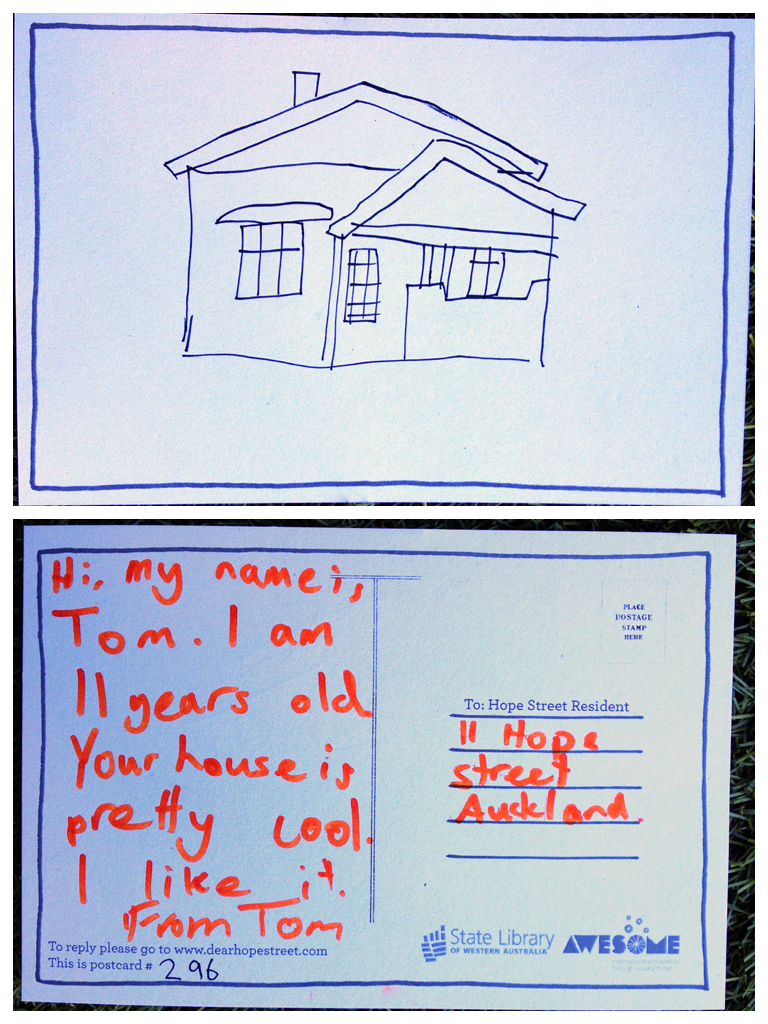 Hi, my name is
Tom. I am
11 years old
Your house is
pretty cool.
I like it.
From Tom
To reply please go to www.dearhopestreet.com
This is postcard # 296
PLACE
POSTAGE
STAMP
HERE
To: Hope Street Resident
11 Hope
street
Auckland.
State Library
OF WESTERN AUSTRALIA
AWESOME